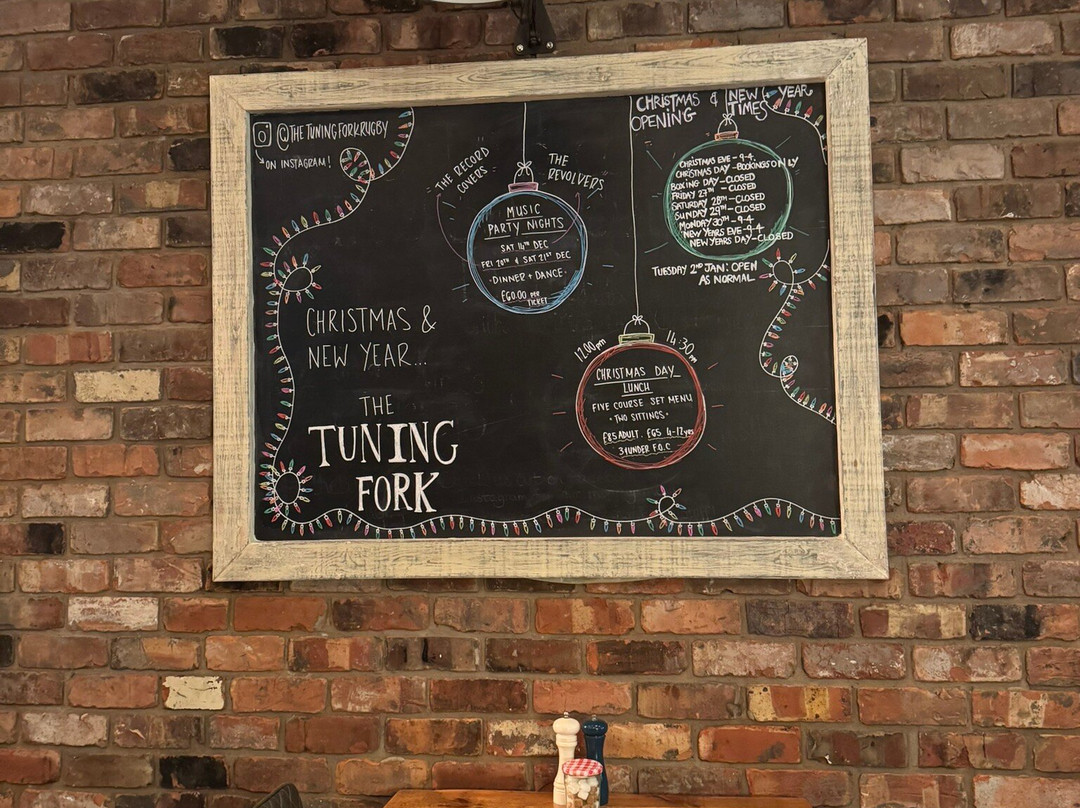 @THETUNINGFORKRUGBY
ON INSTAGRAM!
CHRISTMAS &
NEW YEAR...
THE
TUNING
FORK
THE RECORD
COVERS
THE
REVOLVERS
MUSIC
PARTY NIGHTS
SAT 14TH DEC
FRI 20TH & SAT 21ST DEC
·DINNER + DANCE·
£60.00 PER
TICKET
12.00pm
14:30pm
CHRISTMAS DAY
LUNCH
FIVE COURSE SET MENU
·TWO SITTINGS·
£85 ADULT. £65 4-12yrs
3 & UNDER F.O.C
CHRISTMAS & NEW YEAR
OPENING TIMES
CHRISTMAS EVE - 9-4
CHRISTMAS DAY - BOOKINGS ONLY
BOXING DAY - CLOSED
FRIDAY 27TH - CLOSED
SATURDAY 28TH - CLOSED
SUNDAY 29TH - CLOSED
MONDAY 30TH - 9-4
NEW YEARS EVE - 9-4
NEW YEARS DAY - CLOSED
TUESDAY 2ND JAN: OPEN
AS NORMAL